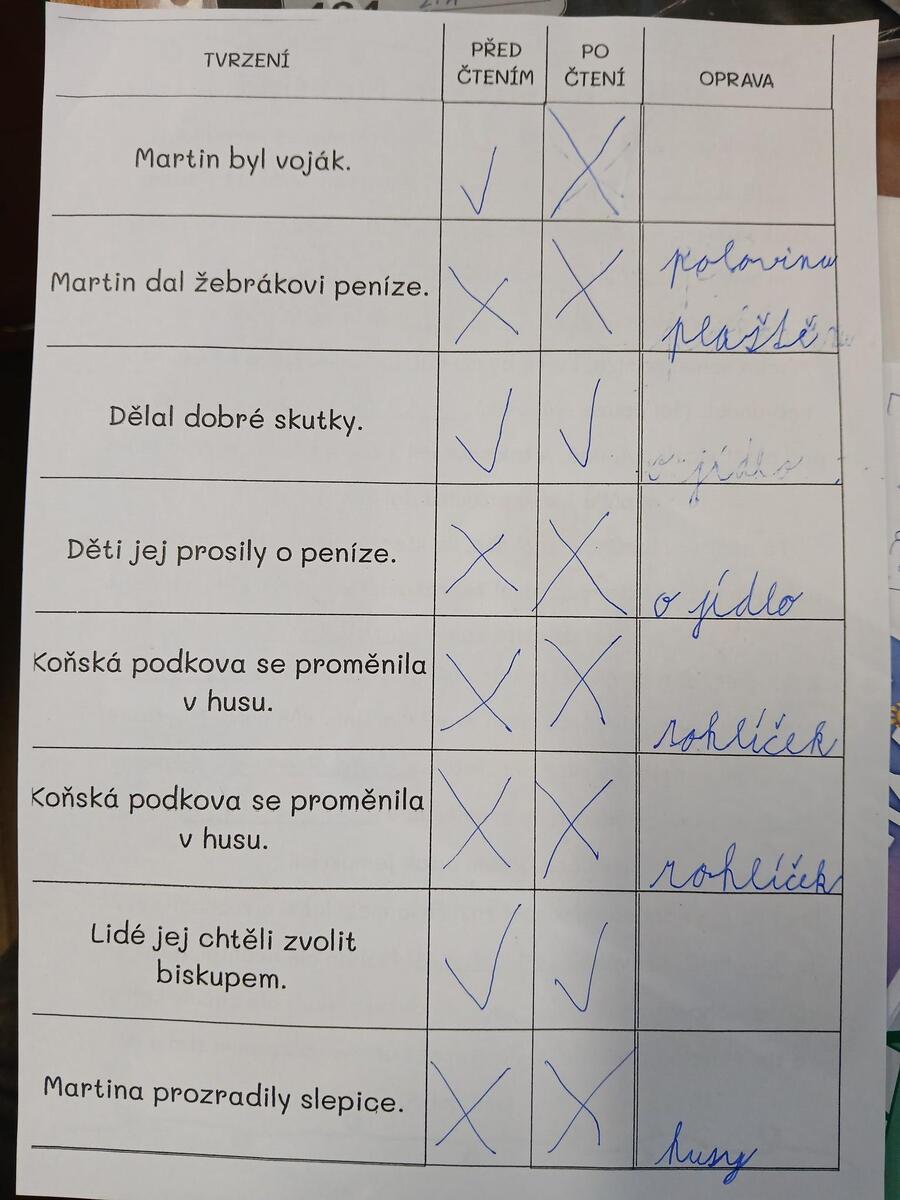 TVRZENÍ PŘED ČTENÍM PO ČTENÍ OPRAVA
Martin byl voják. ✓ X
Martin dal žebrákovi peníze. X X polovinu
pláště
Dělal dobré skutky. ✓ ✓ o jídlo
Děti jej prosily o peníze. X X o jídlo
Koňská podkova se proměnila
v husu. X X rohlíček
Koňská podkova se proměnila
v husu. X X rohlíček
Lidé jej chtěli zvolit
biskupem. ✓ ✓
Martina prozradily slepice. X X husy